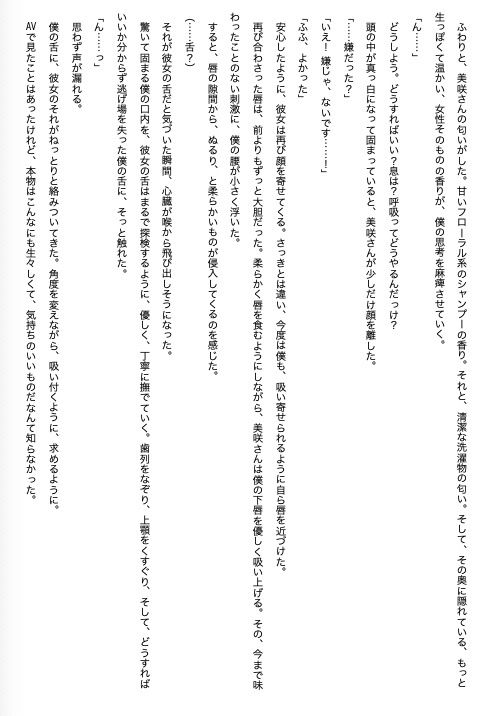 ふわりと、美咲さんの匂いがした。甘いフローラル系のシャンプーの香り。それと、清潔な洗濯物の匂い。そして、その奥に隠れている、もっと
生っぽくて温かい、女性そのものの香りが、僕の思考を麻痺させていく。
「ん……」
どうしよう。どうすればいい？息は？呼吸ってどうやるんだっけ？
頭の中が真っ白になって固まっていると、美咲さんが少しだけ顔を離した。
「……嫌だった？」
「いえ！ 嫌じゃ、ないです……！」
「ふふ、よかった」
安心したように、彼女は再び顔を寄せてくる。さっきとは違い、今度は僕も、吸い寄せられるように自ら唇を近づけた。
再び合わさった唇は、前よりもずっと大胆だった。柔らかく唇を食むようにしながら、美咲さんは僕の下唇を優しく吸い上げる。その、今まで味
わったことのない刺激に、僕の腰が小さく浮いた。
すると、唇の隙間から、ぬるり、と柔らかいものが侵入してくるのを感じた。
（……舌？）
それが彼女の舌だと気づいた瞬間、心臓が喉から飛び出しそうになった。
驚いて固まる僕の口内を、彼女の舌はまるで探検するように、優しく、丁寧に撫でていく。歯列をなぞり、上顎をくすぐり、そして、どうすれば
いいか分からず逃げ場を失った僕の舌に、そっと触れた。
「ん……っ」
思わず声が漏れる。
僕の舌に、彼女のそれがねっとりと絡みついてきた。角度を変えながら、吸い付くように、求めるように。
AVで見たことはあったけれど、本物はこんなにも生々しくて、気持ちのいいものだなんて知らなかった。